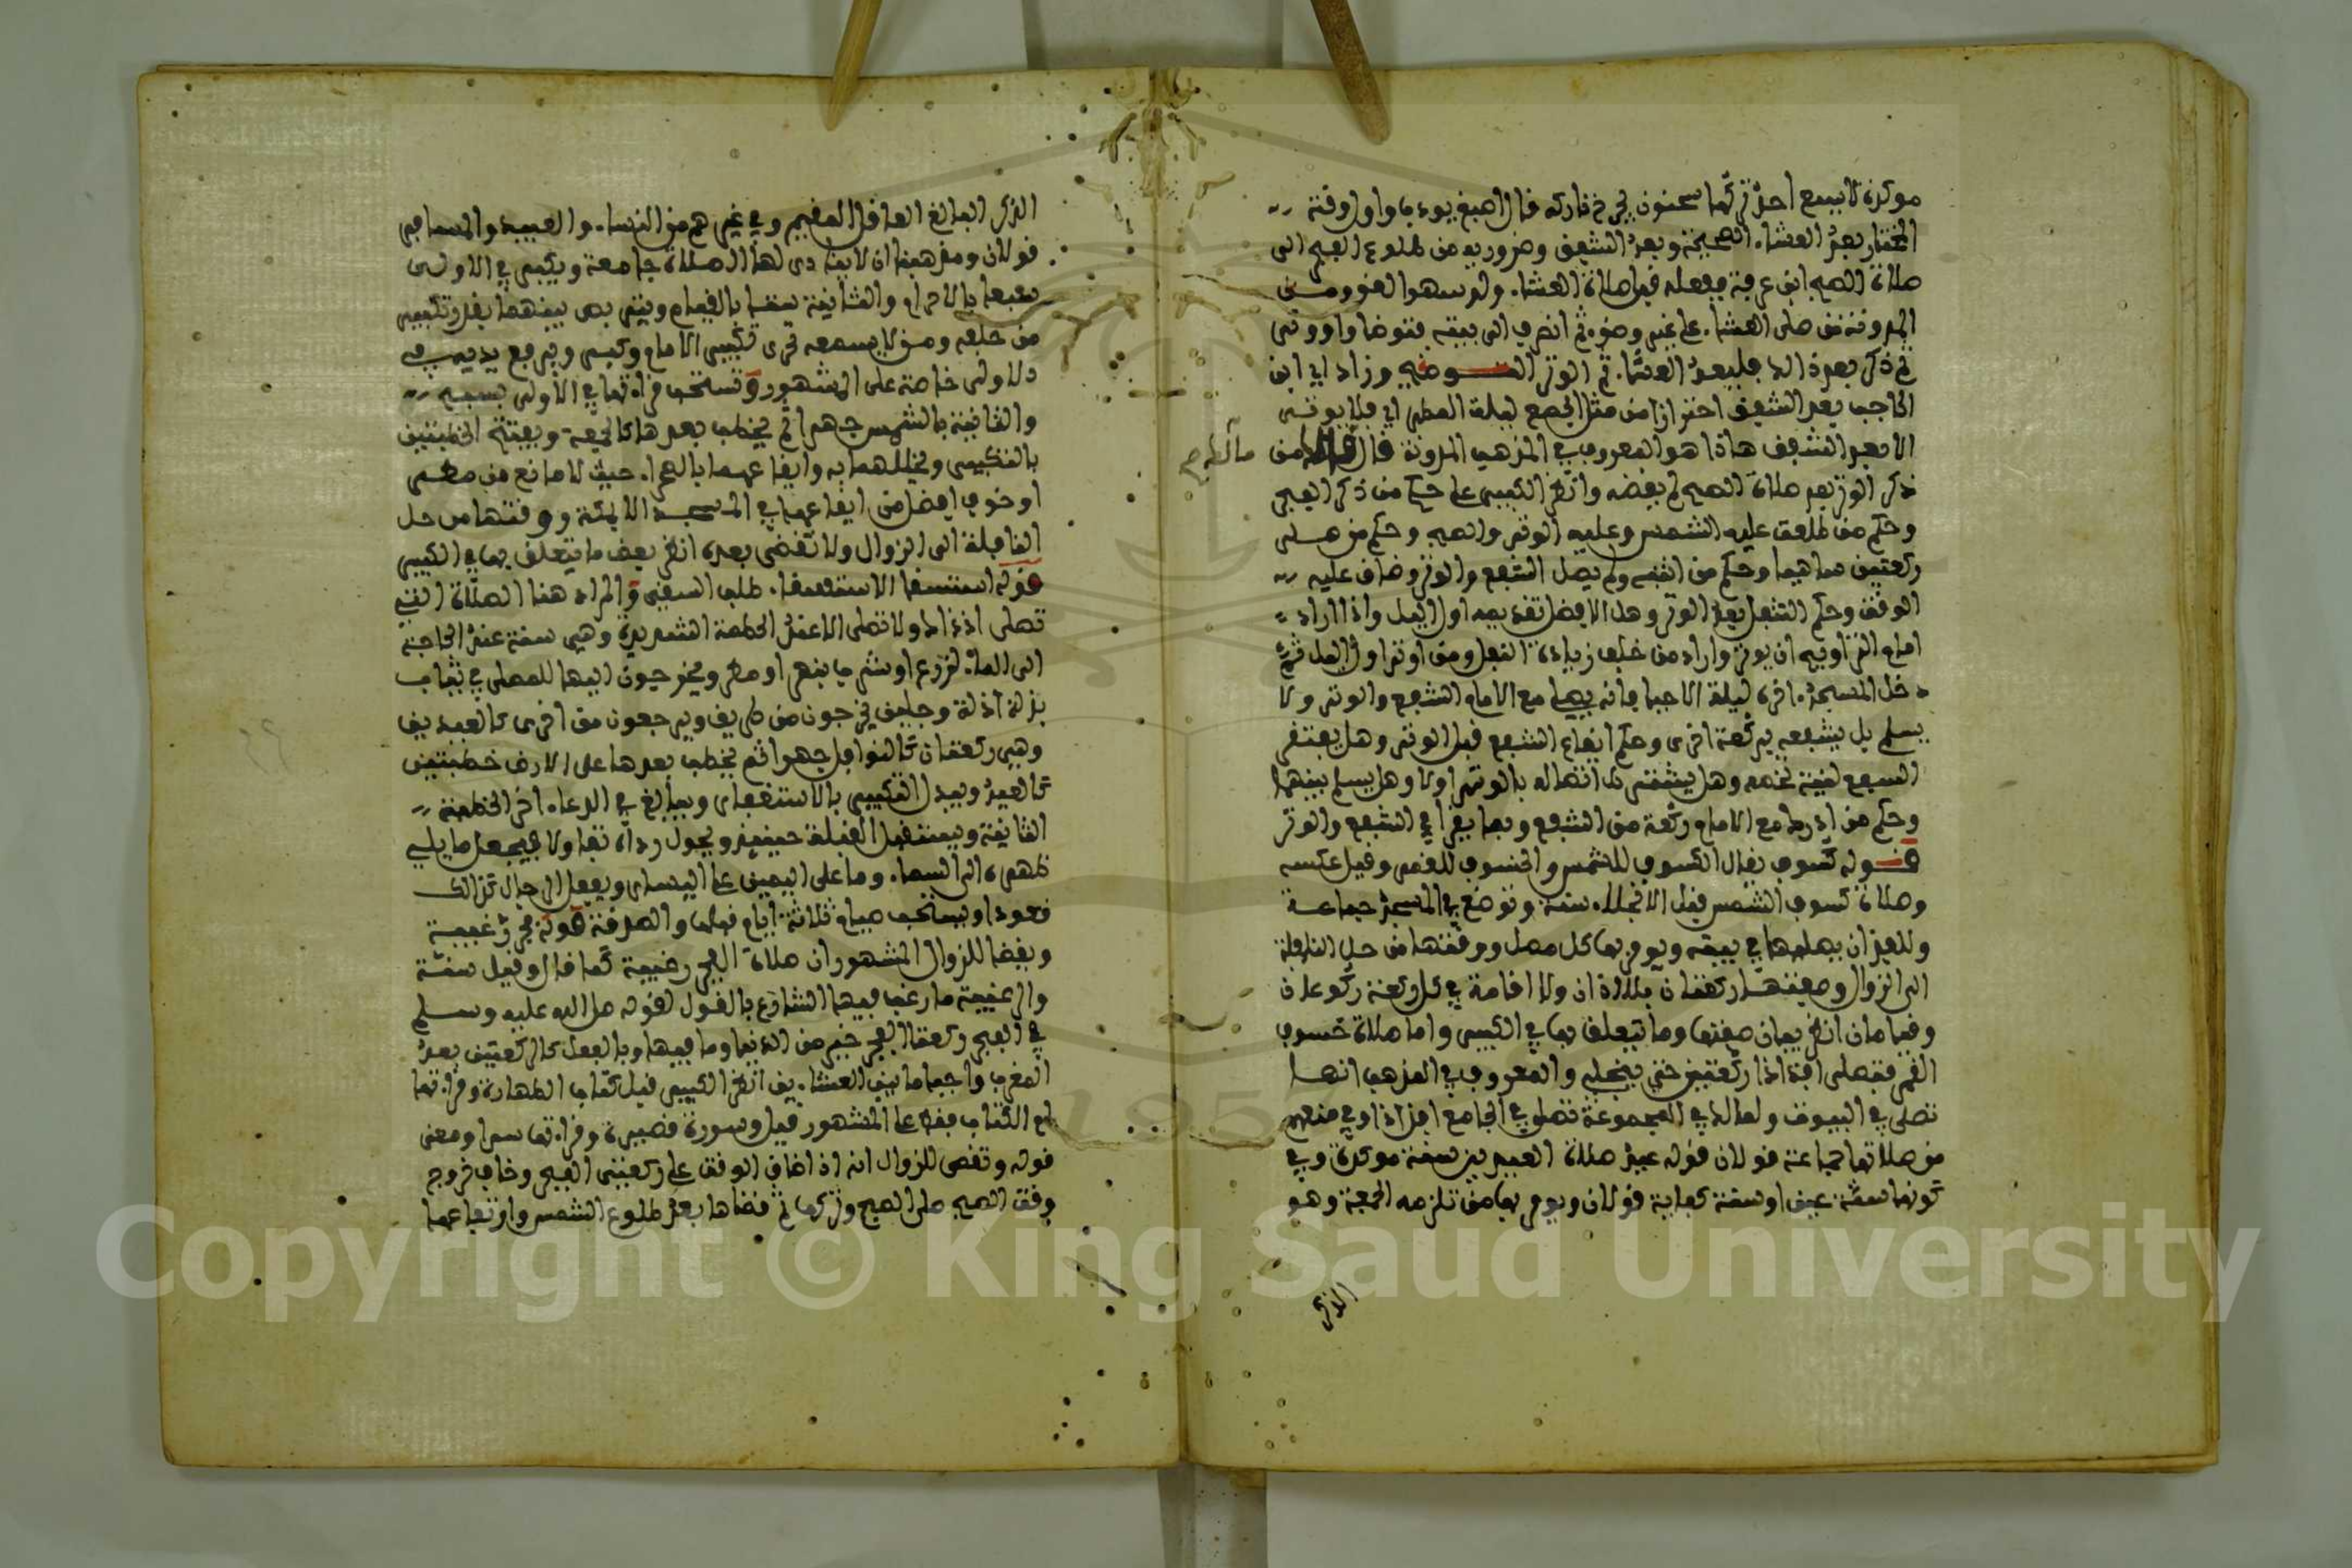 موكدة لا يسع احد تركها سحنون يجرح تاركه فال اصبغ يودب واول وفته
المختار بعد العشاء الصحيحة وبعد الشفق وضروريه من طلوع الفجر الى
صلاة الصبح ابن عرفة بفعله فبل صلاة العشاء ولو سهوا لغو ومن
المدونة من صلى العشاء على غير وضوء ثم انصرف الى بيته فتوضا واوتر
ثم ذكر بعد ذالك فليعد العشاء ثم الوتر التوضيح وزاد اي ابن
الحاجب بعد الشفق احترازا من مثل الجمع ليلة المطر اي فلا يوتر
الا بعد الشفق هاذا هو المعروف في المذهب المدونة فال مالك من
ذكر الوتر بعد صلاة الصبح لم يفضه وانظر الكبير على حكم من ذكر الفجر
وحكم من طلعت عليه الشمس وعليه الوتر والصبح وحكم من صلى
ركعتين ساهيا وحكم من انتبه ولم يصل الشفع والوتر وضاف عليه
الوفت وحكم التنفل بعد الوتر وهل الافضل تفديمه اول اليل واذا اراد
امام التراويح ان يوتر واراد من خلفه زيادة التنفل ومن اوتر اول اليل ثم
دخل المسجد اخره ليلة الاحيا فانه يصلى مع الامام الشفع والوتر ولا
يسلم بل يشفعه بركعة اخرى وحكم ايفاع الشفع فبل الوتر وهل يفتفر
الشفع لنية تخصه وهل يشترط اتصاله بالوتر اولا وهل يسلم بينهما
وحكم من ادرك مع الامام ركعة من الشفع وبما يفرا في الشفع والوتر
فوله كسوف يفال الكسوف للشمس والخسوف للفمر وفيل عكسه
وصلاة كسوف الشمس فبل الانجلاء سنة وتوضع في المسجد جماعة
وللفذ ان يصليها في بيته ويومر بها كل مصل ووفتها من حل النافلة
الى الزوال وصفتها ركعتان بلا اذان ولا افامة في كل ركعة ركوعان
وفيامان انظر بيان صفتها وما يتعلق بها في الكبير واما صلاة خسوف
الفمر فتصلى افذاذا ركعتين حتى ينجلي والمعروف في المذهب انها
تصلى في البيوت ولمالك في المجموعة تصلى في الجامع افذاذا وفي منعهم
من صلاتها جماعة فولان فوله عيد صلاة العيدين سنة موكدة وفي
كونها سنة عين او سنة كفاية فولان ويومر بها من تلزمه الجمعة وهو
مالك صح
الذكر
الذكر البالغ العافل المفيم وفي غيرهم من النساء والعبيد والمسافر
فولان ومذهبنا ان لا ينادى لها الصلاة جامعة ويكبر في الاولى
سبعا بالاحرام والثانية ستا بالفيام وينتظر بينهما بفدر تكبير
من خلفه ومن لا يسمعه تحرى تكبير الامام وكبر ويرفع يديه في
الاولى خاصة على المشهور وتستحب فراءتها في الاولى بسبح
والثانية بالشمس جهرا ثم يخطب بعدها كالجمعة ويفتتح الخطبتين
بالتكبير ويخللهما به وايفاعهما بالصحراء حيث لا مانع من مطر
او خوف افضل من ايفاعها في المسجد الا بمكة ووفتها من حل
النافلة الى الزوال ولا تفضى بعده انظر بعض ما يتعلق بها في الكبير
فوله استسفا الاستسفاء طلب السفي والمراد هنا الصلاة التي
تصلى اذ ذاك ولا تصلى الا عند الحاجة الشديدة وهي سنة عند الحاجة
الى الماء لزرع او شرب بنهر او مطر ويخرجون اليها للمصلى في ثياب
بذلة اذلة وجلين يخرجون من طريق ويرجعون من اخرى كالعيدين
وهي ركعتان كالنوافل جهرا ثم يخطب بعدها على الارض خطبتين
كالعيد ويبدل التكبير بالاستغفار ويبالغ في الدعاء اخر الخطبة
الثانية ويستفبل الفبلة حينئذ ويحول رداءه تفاولا فيجعل ما يلي
ظهره الى السماء وما على اليمين على اليسار ويفعل الرجال كذالك
فعودا ويستحب صيام ثلاثة ايام فبلها والصدفة فوله فجر رغيبة
ويفضا للزوال المشهور ان صلاة الفجر رغيبة كما فال وفيل سنة
والرغيبة ما رغب فيها الشارع بالفول لفوله صلى الله عليه وسلم
في الفجر ركعتا الفجر خير من الدنيا وما فيها وبالفعل كالركعتين بعد
المغرب واحيا ما بين العشاءين انظر الكبير فبل كتاب الطهارة وفراءتها
بام الكتاب بفط على المشهور فيل وسورة فصيرة وفراءتها سرا ومعنى
فوله وتفضى للزوال انه اذا ضاف الوفت على ركعتي الفجر وخاف خروج
وفت الصبح صلى الصبح وتركها ثم فضاها بعد طلوع الشمس وارتفاعها
Copyright © King Saud University
1957